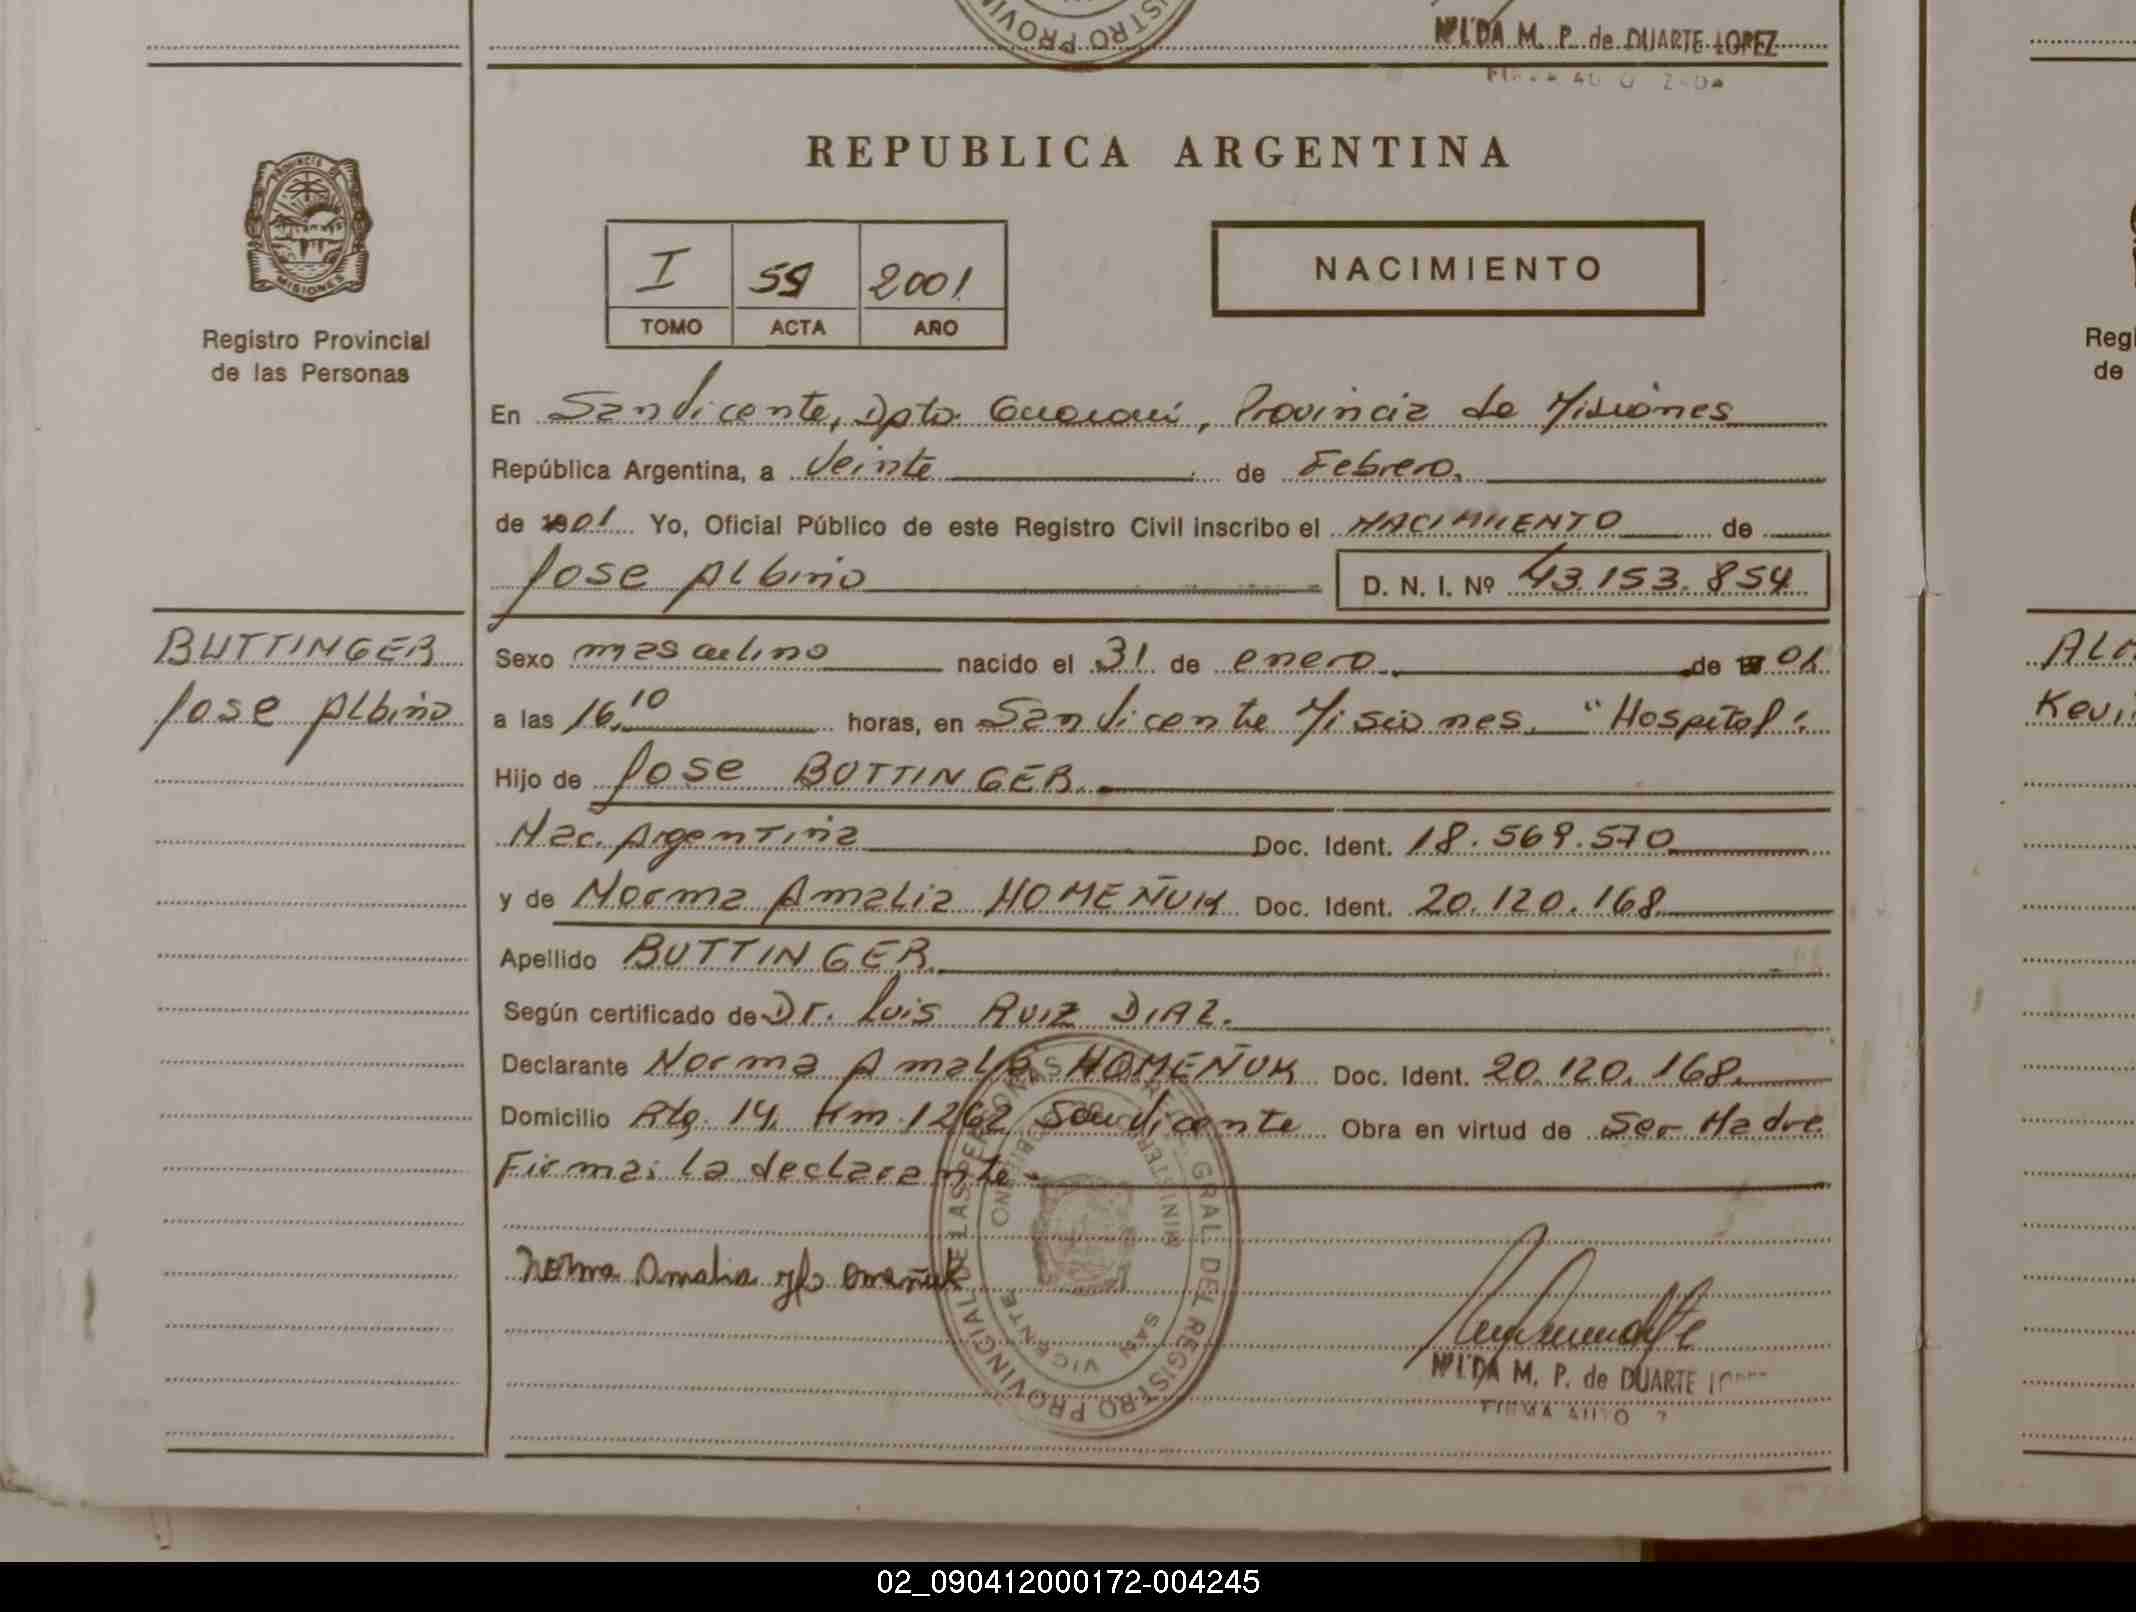 NILDA M. P. de DUARTE LOPEZ
REPUBLICA ARGENTINA
PROVINCIA DE
MISIONES
Registro Provincial
de las Personas
I 59 2001
TOMO ACTA AÑO
NACIMIENTO
En San Vicente, Dpto. Guaraní, Provincia de Misiones
República Argentina, a Veinte de Febrero.
de 1901 Yo, Oficial Público de este Registro Civil inscribo el NACIMIENTO de
Jose Albino D. N. I. Nº 43.153.854
BUTTINGER
Jose Albino
Sexo masculino nacido el 31 de enero de 01
a las 16,10 horas, en San Vicente Misiones. "Hospital"
Hijo de Jose BUTTINGER.
Nac. Argentina Doc. Ident. 18.569.570
y de Norma Amalia HOMEÑUK Doc. Ident. 20.120.168
Apellido BUTTINGER.
Según certificado de Dr. Luis RUIZ DIAZ.
Declarante Norma Amalia HOMEÑUK Doc. Ident. 20.120.168
Domicilio Rta. 14, Km. 1262 San Vicente Obra en virtud de Ser Madre
Firma: la declarante
Norma Amalia
NILDA M. P. de DUARTE
FIRMA
REGISTRO PROVINCIAL DE LAS PERSONAS
GRAL DEL
SAN VICENTE
Regi
de
ALM
Kevi
02_090412000172-004245